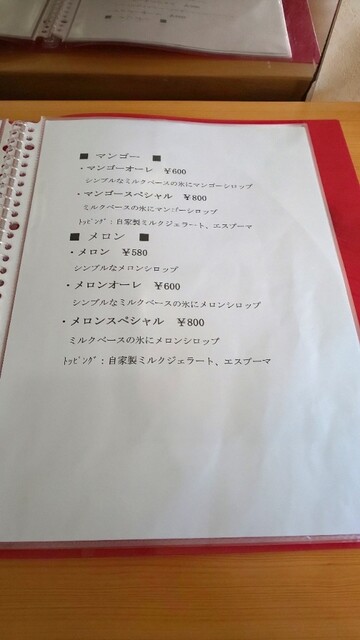 ■ マンゴー ■
・マンゴーオーレ ￥600
シンプルなミルクベースの氷にマンゴーシロップ
・マンゴースペシャル ￥800
ミルクベースの氷にマンゴーシロップ
ﾄｯﾋﾟﾝｸﾞ：自家製ミルクジェラート、エスプーマ
■ メロン ■
・メロン ￥580
シンプルなメロンシロップ
・メロンオーレ ￥600
シンプルなミルクベースの氷にメロンシロップ
・メロンスペシャル ￥800
ミルクベースの氷にメロンシロップ
ﾄｯﾋﾟﾝｸﾞ：自家製ミルクジェラート、エスプーマ